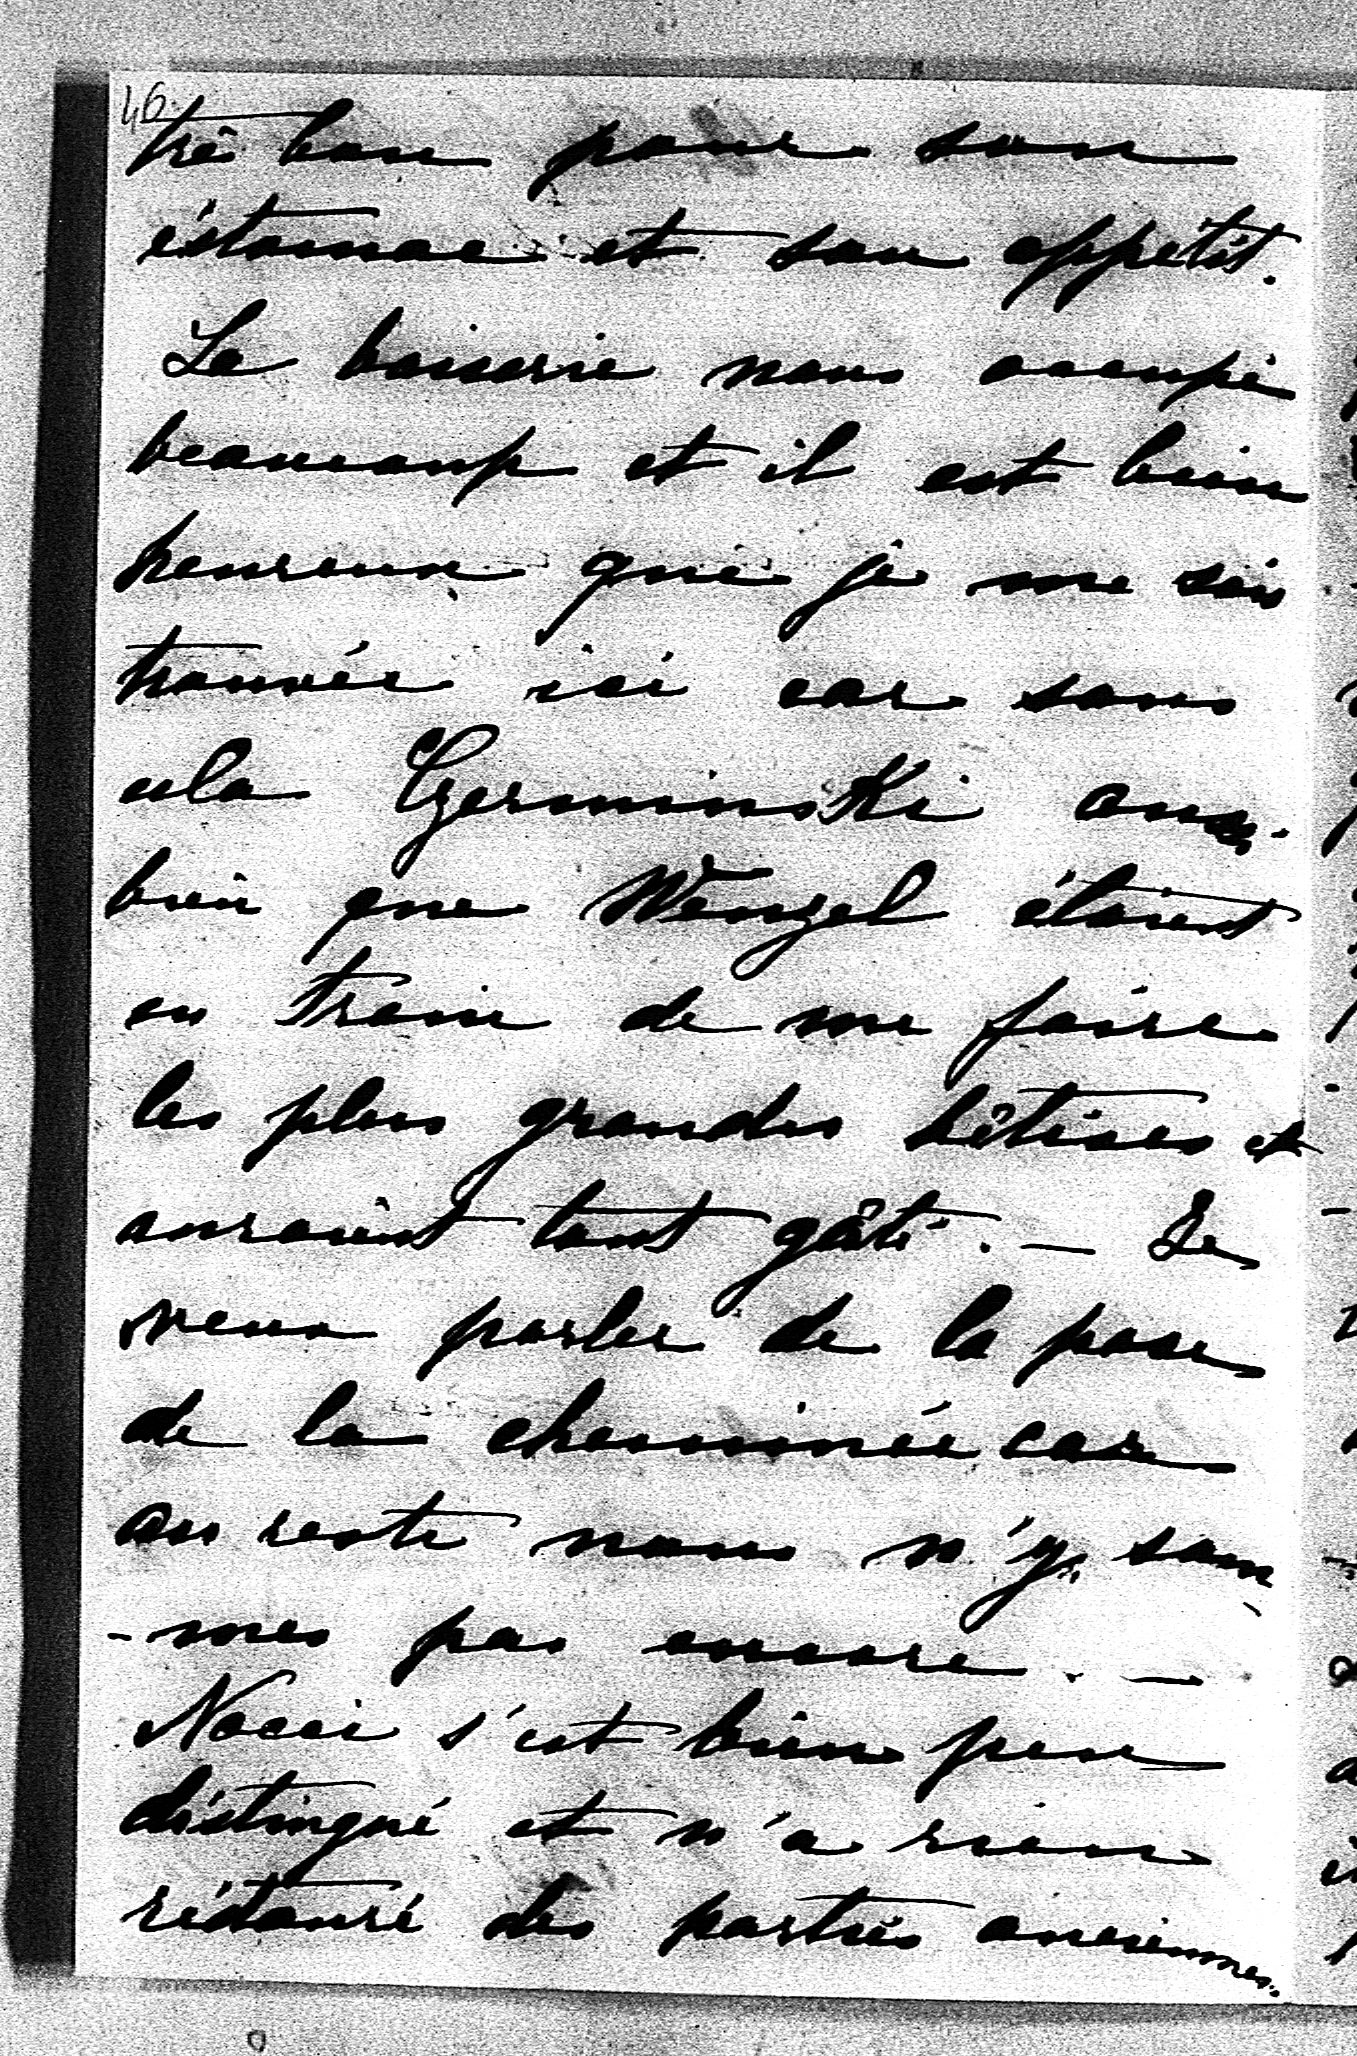 46.
très bon pour son
éstomac et son appétit.
La boiserie nous occupe
beaucoup et il est bien
heureux que je me sois
trouvée ici car sans
cela Czerminski aussi
bien que Wenzel étaient
en train de me faire
les plus grandes bêtises et
auraient tout gâté. — Je
veux parler de la pose
de la cheminée car
au reste nous n'y som
-mes pas encore. —
Nocci s'est bien peu
distingué et n'a rien
réstauré des parties anciennes.